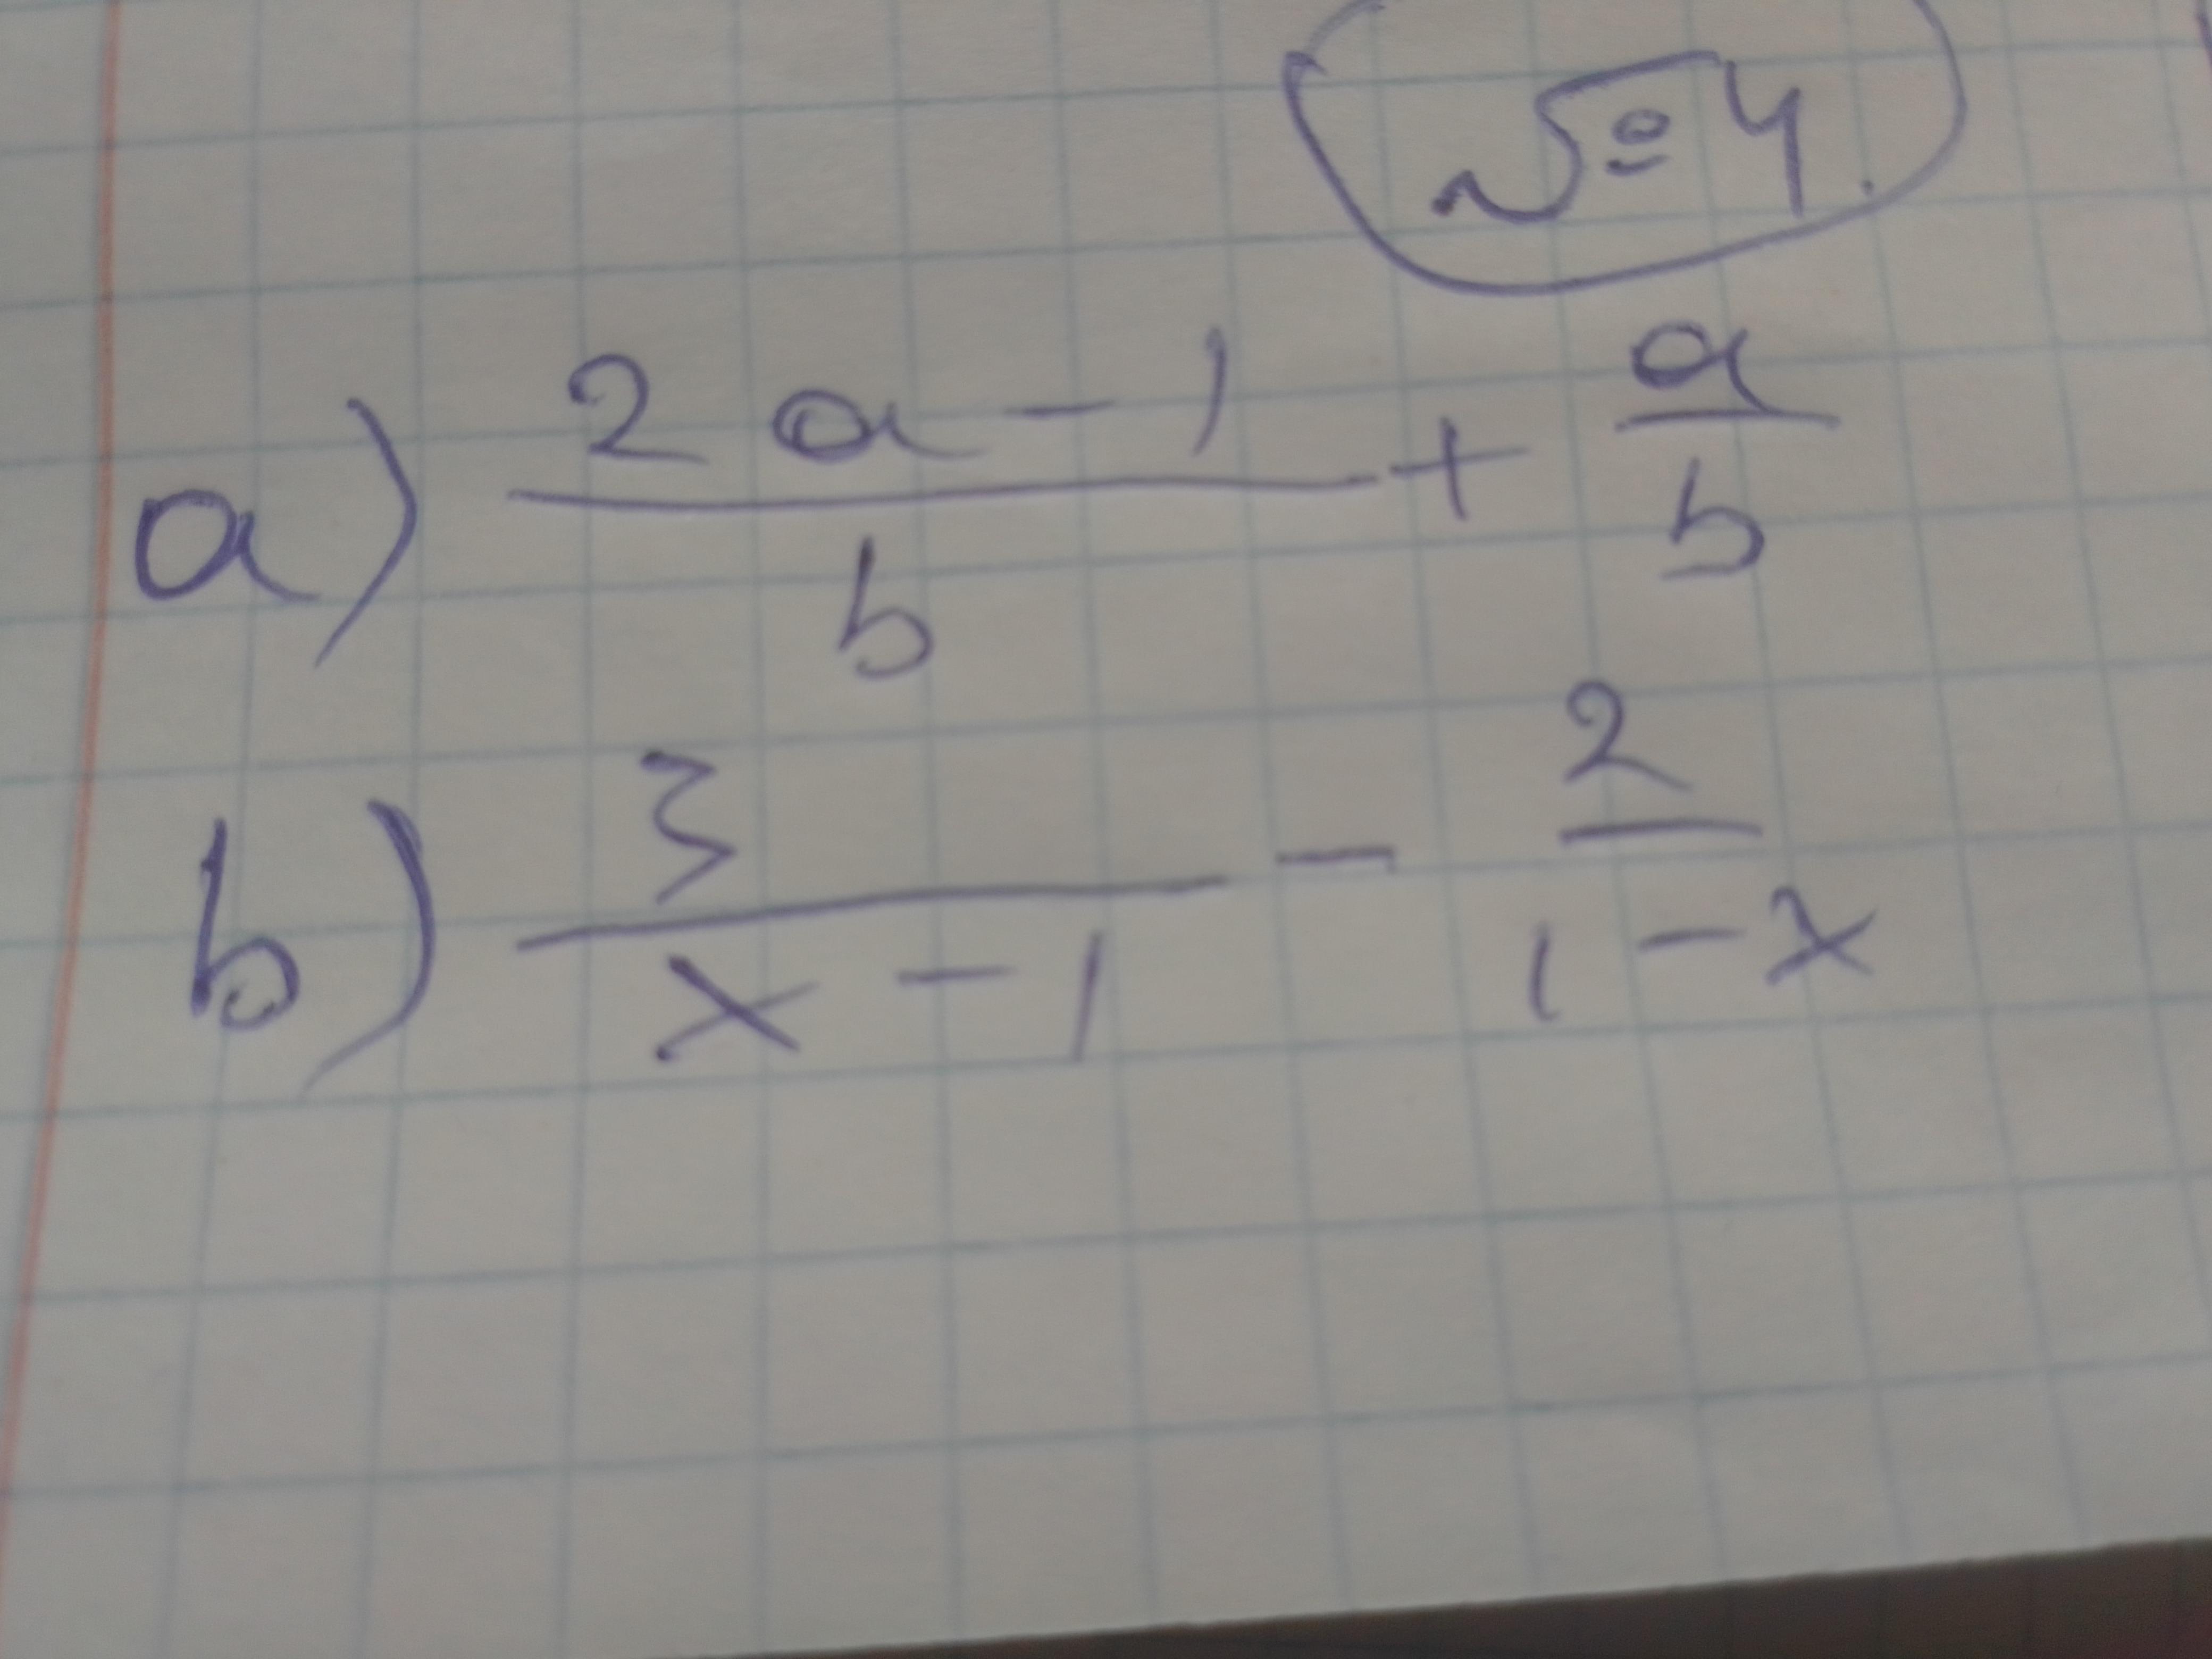 №4.
a) \frac{2a-1}{b} + \frac{a}{b}
b) \frac{3}{x-1} - \frac{2}{1-x}